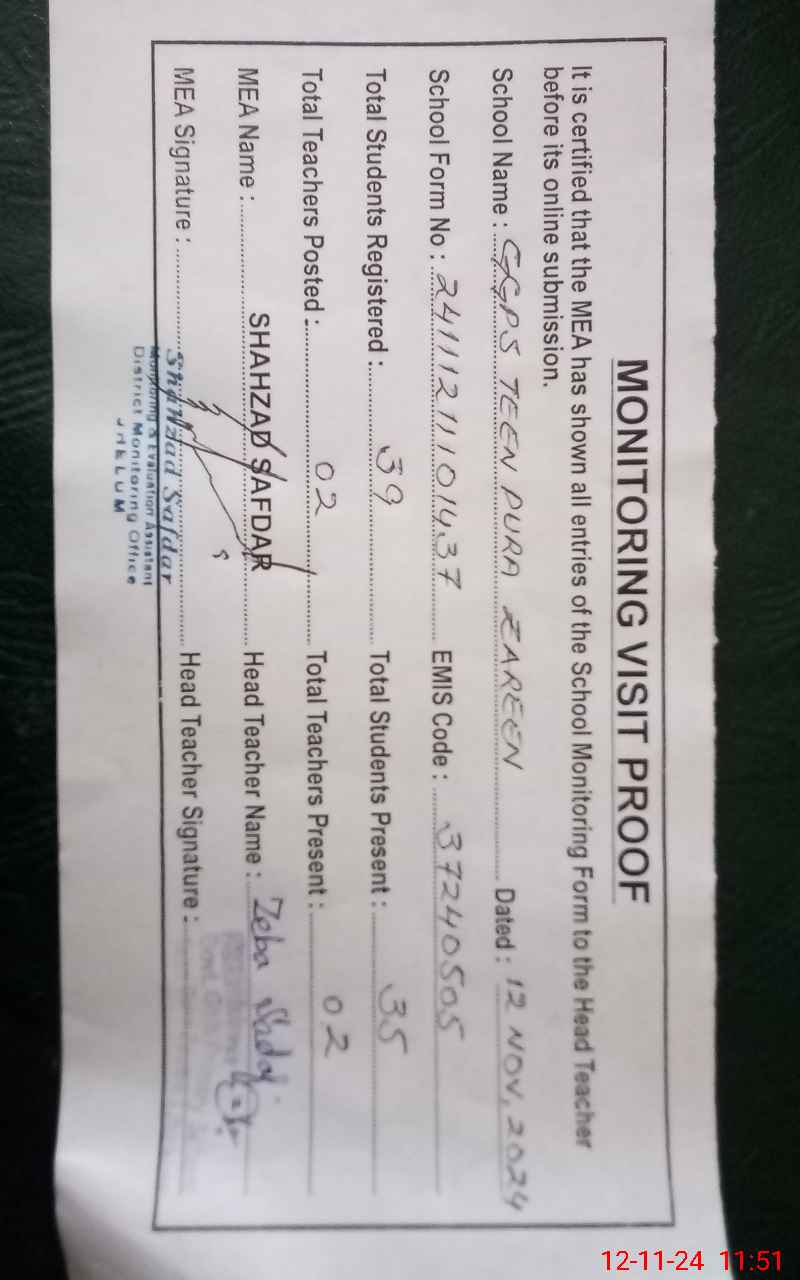 MONITORING VISIT PROOF
It is certified that the MEA has shown all entries of the School Monitoring Form to the Head Teacher
before its online submission.
School Name : GGPS TEEN PURA ZAREEN Dated : 12 NOV, 2024
School Form No : 24111211101437 EMIS Code : 37240505
Total Students Registered : 39 Total Students Present : 35
Total Teachers Posted : 02 Total Teachers Present : 02
MEA Name : SHAHZAD SAFDAR Head Teacher Name : Zeba
MEA Signature : Head Teacher Signature :
Shahzad Safdar
Monitoring & Evaluation Assistant
District Monitoring Office
JHELUM
12-11-24 11:51